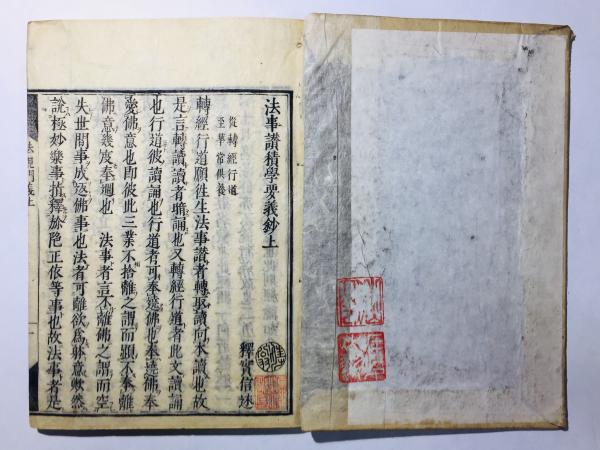 法事讃積學要義鈔上
從轉經行道
至華常供養
釋實信述
轉經行道願徃生法事讃者轉取讀何木讀也故
是言轉讀讀者暗誦也又轉經行道者此文讀誦
也行道彼讀誦也行道者可奉遶佛也奉遶佛奉
愛佛意也即彼此三業不捨離之謂而頭不奉離
佛意幾度奉遶也 法事者言不離佛之謂而空
失世間事成返佛事也法者可離欲為躰意歟然
說極妙樂事指釋於陁正依等事也故法事者是